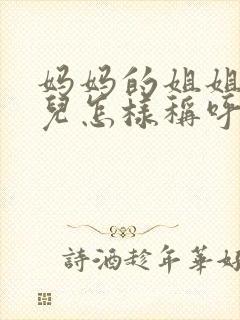 妈妈的姐姐
兒怎樣稱呼
詩酒趁年華好